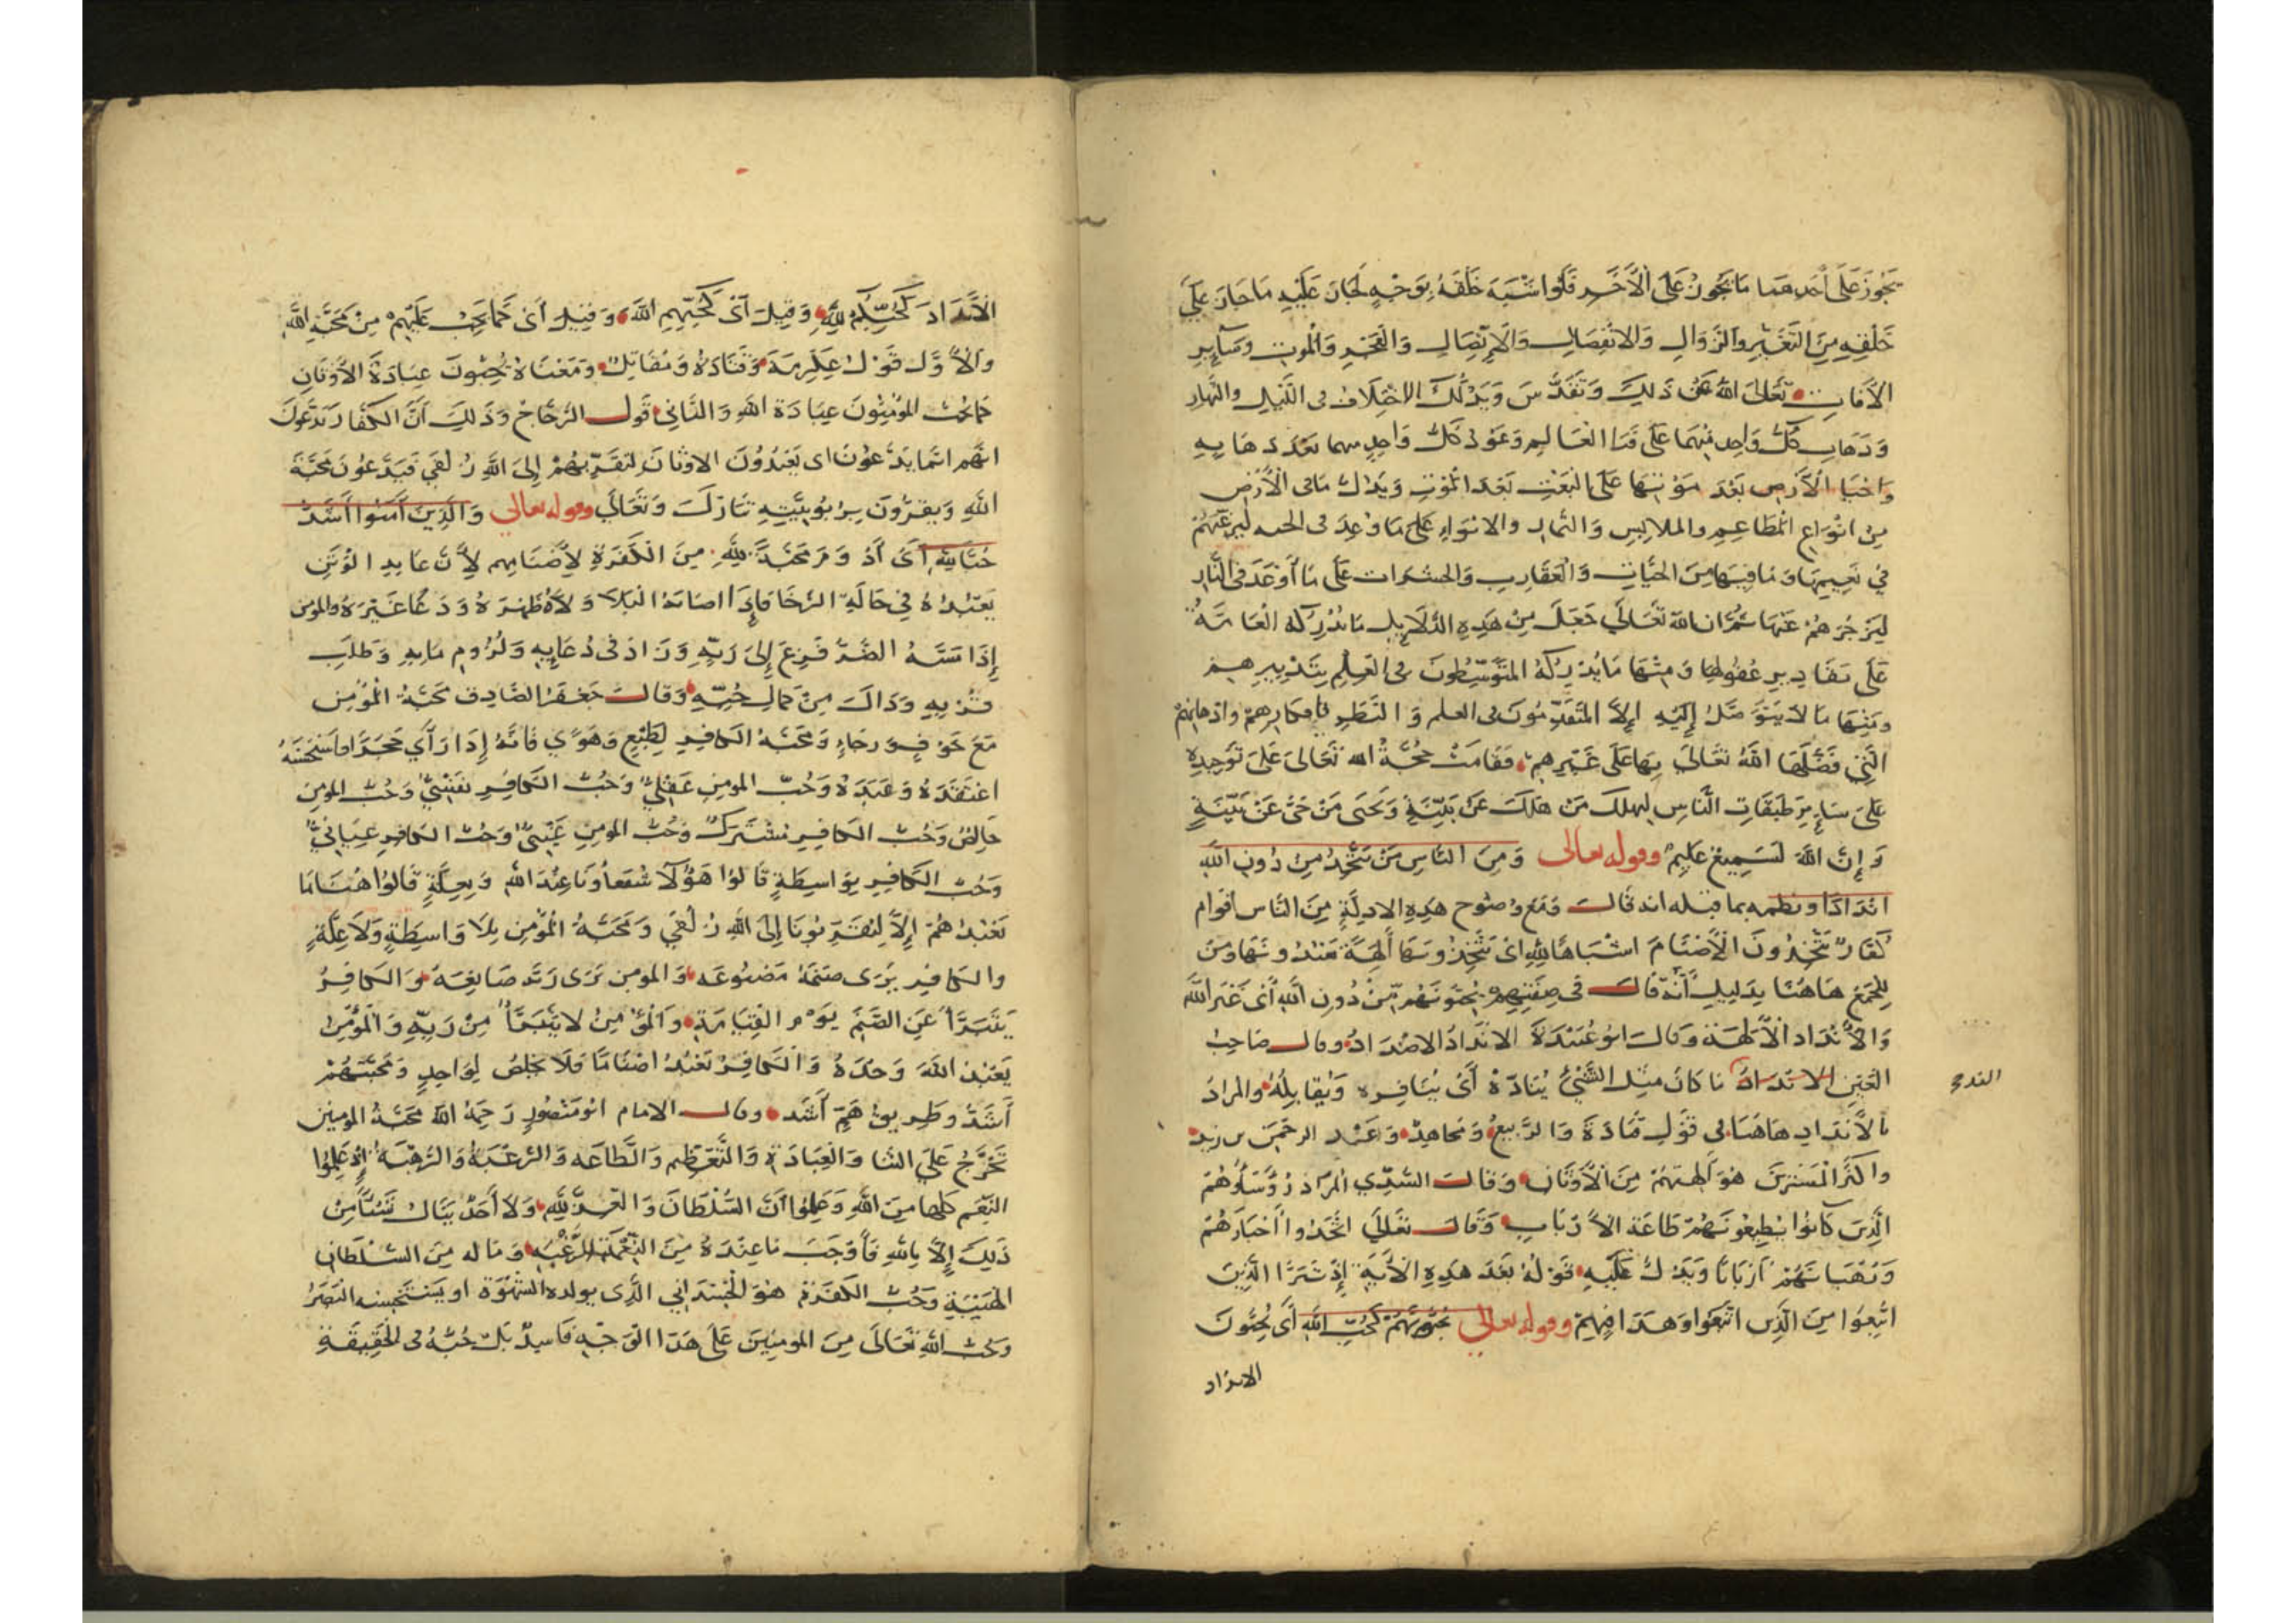 يَجُوزَ عَلَى أحدهما مَا يَجُوزُ عَلَى الْآخَرِ فَلَوْ اشْبَهَ خَلْقَهُ بِوَجْهٍ لَجَازَ عَلَيْهِ مَا جَازَ عَلَى
خَلْقِهِ مِنَ التَّغَيُّرِ والزَّوَالِ وَالانْفِصَالِ وَالْاِتِّصَالِ وَالْعَجْزِ وَالْمَوتِ وَسَآئِرِ
الآفَاتِ تَعَالَى اللّهُ عَنْ ذَلِكَ وَتَقَدَّسَ وَيَدُلُّكَ الاخْتِلَافُ فى اللَّيْلِ والنَّهَارِ
وَذَهَابِ كُلِّ وَاحِدٍ مِنْهُمَا عَلَى فَنَا الْعَالَمِ وَعَوْدُ كُلِّ وَاحِدٍ منهما بَعْدَ ذهَابِهِ
وَاحْيَا الْأَرْضِ بَعْدَ مَوْتِهَا عَلَى الْبَعْثِ بَعْدَ الْمَوْتِ وَيَدُلُّ مَا فى الْأَرْضِ
مِنْ انْوَاعِ الْمَطَاعِمِ والملابِسِ وَالثِّمَارِ والانوَاءِ عَلَى مَا وُعِدَ فى الجنه لِيُرَغِّبَهُمْ
فِي نَعِيمِهَا وَمَا فِيهَا مِنَ الحَيَّاتِ وَالْعَقَارِبِ وَالحشَرَات عَلَى مَا أَوْعَدَ فى النَّارِ
لِيَزْجُرَهُمْ عَنْهَا ثُمَّ ان اللّه تَعَالَى جَعَلَ مِنْ هَذِهِ الدَّلَايِلِ مَا يُدْرِكُهُ الْعَامَّةُ
عَلَى مَقَادِيرِ عُقُولِهَا وَمِنْهَا مَا يُدْرِكُهُ المُتَوَسِّطُونَ فى العِلْمِ بِتَدْبِيرِهِمْ
وَمِنْهَا مَا لَا يَتَوَصَّلُ إِلَيْهِ إِلَّا المُتَقَدِّمُونَ فى العلم وَالنَّظَرِ بافكارِهِمْ واذهانِهِمْ
الَّتِي فَضَّلَهَا اللّهُ تَعَالَى بِهَا عَلَى غَيْرِهِمْ فَقَامَتْ حُجَّةُ الله تَعَالَى عَلَى تَوْحِيدِهِ
عَلَى سَائِرِ طَبَقَاتِ النَّاسِ لِيهلكَ مَنْ هَلَكَ عَنْ بَيِّنَةٍ وَيَحْيَى مَنْ حَىَّ عَنْ بَيِّنَةٍ
وَإِنَّ اللّهَ لَسَمِيعٌ عَلِيمٌ وقوله تعالى وَمِنَ النَّاسِ مَنْ يَتَّخِذُ مِنْ دُونِ اللّهِ
انْدَادًا ونظمه بما قبله انه قَالَ وَمَعَ وضُوحِ هَذِهِ الادِلَّةِ مِنَ النَّاسِ أقوام
كُفّارٌ يَتَّخِذُونَ الْأَصْنَامَ اشْبَاهًا لِلّهِ اىْ يَتَّخِذُونَهَا أَلِهَةً يَعْبُدُونَهَا وَمَنْ
لِلْجَمْعِ هَاهُنَا بِدَلِيلِ أَنَّهُ قَالَ فى صِفَتِهِمْ يُحِبُّونَهُمْ مِنْ دُونِ اللّهِ أَىْ غَيْرِ اللَّهِ
وَالْأَنْدَادُ الْآلِهَةُ وَقَالَ ابُو عُبَيْدَةَ الانْدَادُ الاضْدَادُ وقال صَاحِبُ
العَيْنِ الانْدَادُ مَا كَانَ مِثْلَ الشَّيْءِ يُنَادُّهُ أَىْ يُنَافِره وَيُقَابِلُهُ والمرَادُ
الند
بالْأَنْدَادِ هَاهُنَا فى قَوْلِ قَتَادَةَ وَالرَّبِيعِ وَمُجَاهِدٍ وَعَبْدِ الرحْمَنِ بن زيد
واكثَرِ المُفَسِّرِينَ هُوَ آلِهَتُهُمْ مِنَ الْأَوْثَانِ وَقَالَ السُّدِّي المُرَادُ رُؤَسَاؤُهُمْ
الَّذِينَ كَانُوا يُطِيعُونَهُمْ طَاعَةَ الْأَرْبَابِ وَقَالَ تَعَالَى اتَّخَذُوا أَحْبَارَهُمْ
وَرُهْبَانَهُمْ أَرْبَابًا وَيَدُلُّ عَلَيْهِ قَوْلُهُ بَعْدَ هَذِهِ الْآيَةِ إِذْ تَبَرَّأَ الَّذِينَ
اتُّبِعُوا مِنَ الَّذِينَ اتَّبَعُوا وَهَذَا فِيهِمْ وقوله تعالى يُحِبُّونَهُمْ كَحُبِّ اللّهِ أَىْ يُحِبُّونَ
الانداد
الْأَنْدَادَ كَحُبِّكُمْ لِلّهِ وَقِيلَ أَىْ كَحُبِّهِمِ اللّهَ وَقِيلَ أَىْ كَمَا يَجِبُ عَلَيْهِمْ مِنْ مَحَبَّةِ اللّهِ
وَالْأَوَّلُ قَوْلُ عِكْرِمَةَ وَقَتَادَةَ وَمُقَاتِلٍ وَمَعْنَاهُ يُحِبُّونَ عِبَادَةَ الْأَوْثَانِ
كَمَا يُحِبُّ المُؤْمِنُونَ عِبَادَةَ اللّهِ وَالثَّانِي قَوْلُ الزَّجَّاجِ وَذَلِكَ أَنَّ الكُفَّارَ يَدَّعُونَ
انَّهُمْ انَّمَا يَدَّعُونَ اى يَعْبُدُونَ الاوْثَانَ لِتُقَرِّبَهُمْ إِلَى اللّهِ زُلْفَى فَيَدَّعُونَ مَحَبَّةَ
اللّهِ وَيُقِرُّونَ بِرُبُوبِيَّتِهِ تَبَارَكَ وَتَعَالَى وقوله تعالى وَالَّذِينَ آمَنُوا أَشَدُّ
حُبًّا لِلّهِ أَىْ أَدْوَمُ مَحَبَّةً لِلّهِ مِنَ الْكَفَرَةِ لِأَصْنَامِهِم لِأَنَّ عَابِدَ الوَثَنِ
يَعْبُدُهُ فِي حَالَةِ الرَّخَا فَإِذَا اصَابَهُ الْبَلَا وَلَّاهُ ظَهْرَهُ وَدَعَا غَيْرَهُ والمؤمن
إِذَا مَسَّهُ الضُّرُّ فَزِعَ إِلَى رَبِّهِ وَزَادَ فى دُعَايِهِ وَلُزُومِ بَابِهِ وَطَلَبِ
قُرْبِهِ وَذَاكَ مِنْ كَمَالِ حُبِّهِ وَقَالَ جَعْفَرٌ الصَّادِقُ مَحَبَّةُ الْمُؤْمِنِ
مَعَ خَوْفٍ وَرَجَاءٍ وَمَحَبَّةُ الكَافِرِ لِطَبْعٍ وَهَوًى فَانَّهُ إِذَا رَأَى حَجَرًا فَاسْتَحْسَنَهُ
اعْتَقَدَهُ وَعَبَدَهُ وَحُبُّ المومِنِ عَقْلِيٌّ وَحُبُّ الكَافِرِ نَفْسِيٌّ وَحُبُّ المومِنِ
خَالِصٌ وَحُبُّ الكَافِرِ مُشْتَرَكٌ وَحُبُّ المومِنِ غَيْبِيٌّ وَحُبُّ الكَافِرِ عِيَانِيٌّ
وَحُبُّ الكَافِرِ بِوَاسِطَةٍ قَالُوا هَؤُلَآ شُفَعَاؤُنَا عِنْدَ اللّهِ وَبِعِلَّةٍ قَالُوا مَا
نَعْبُدُهُمْ إِلَّا لِيُقَرِّبُونَا إِلَى اللّهِ زُلْفَى وَمَحَبَّةُ الْمُؤْمِنِ بِلَا وَاسِطَةٍ وَلَا عِلَّةٍ
والكَافِر يَرَى صَنَمَهُ مَصْنُوعَه وَالمومِن يَرَى رَبَّه صَانِعَهُ وَالكَافِرُ
يَتَبَرَّأُ عَنِ الصَّنَمِ يَوْمَ الْقِيَامَةِ وَالْمُؤْمِنُ لَا يَتَبَرَّأُ مِنْ رَبِّهِ وَالْمُؤْمِنُ
يَعْبُدُ اللّهَ وَحْدَهُ وَالكَافِرُ يَعْبُدُ اصْنَامًا فَلَا يَخْلُصُ لِوَاحِدٍ وَمَحَبَّتُهُمْ
أَشَدُّ وطَرِيقُهُمْ أَسَدُّ وقال الامام ابُو مَنْصُورٍ رَحِمَهُ اللّهُ مَحَبَّةُ المومِنِينَ
تُخَرَّجُ عَلَى الثَّنَا وَالْعِبَادَةِ وَالتَّعْظِيمِ وَالطَّاعَه وَالرَّغْبَةِ وَالرَّهْبَةِ اذْ عَلِمُوا
النِّعَمَ كلها مِنَ اللّهِ وَعَلِمُوا أَنَّ السُّلْطَانَ وَالعِزَّ لِلّهِ وَلَا أَحَدٌ يَنَالُ شَيْئًا مِنْ
ذَلِكَ إِلَّا بِاللّهِ فَأَوْجَبَ مَا عِنْدَهُ مِنَ النِّعْمَةِ الرَّغْبَةَ وَمَا له مِنَ السُّلْطَانِ
الهَيْبَةَ وَحُبُّ الكَفَرَةِ هُوَ الْجَسَدَانِي الَّذِى يولده الشَّهْوَة او يَسْتَحْسِنه الْبَصَرُ
وَحُبُّ اللّهِ تَعَالَى مِنَ المومِنِينَ عَلَى هَذَا الْوَجْهِ فَاسِدٌ بَلْ حُبُّهُ فى الْحَقِيقَةِ